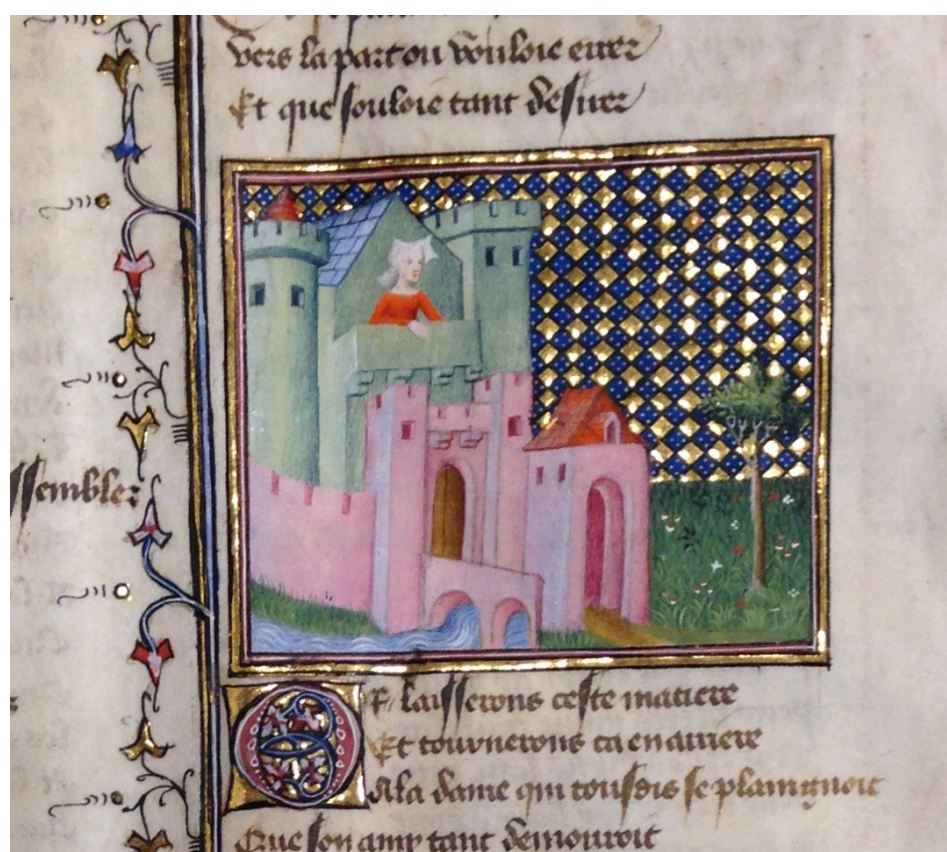 vers la part ou vouloie errer
Et que souloie tant desirer
ssembler
Or laisserons ceste matiere
Et tournerons ca en arriere
A la dame qui tousdis se plaingnoit
Que son amy tant demouroit